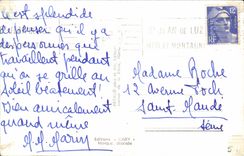 C'est splendide
de penser qu'il y a
des personnes qui
travaillent pendant
qu'on se grille au
soleil béatement!
Bien amicalement
quand même
DE LUZ
MONTAGNE
Madame Roche
12 Avenue Foch
Saint Mandé
Seine